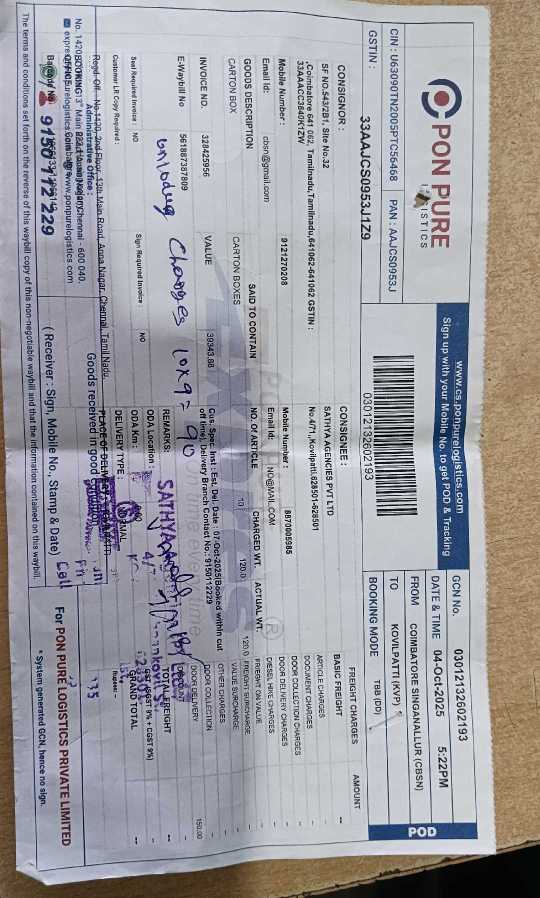 PON PURE
LOGISTICS
CIN : U63090TN2005PTC56468
PAN : AAJCS0953J
GSTIN :
33AAJCS0953J1Z9
www.cs.ponpurelogistics.com
Sign up with your Mobile No. to get POD & Tracking
03012132602193
GCN No. 03012132602193
DATE & TIME 04-Oct-2025 5:22PM
FROM COIMBATORE SINGANALLUR (CBSN)
TO KOVILPATTI (KVP)
BOOKING MODE TBB (DD)
POD
CONSIGNOR :
SF NO.543/2B1, Site No.32
,Coimbatore 641 062, Tamilnadu,Tamilnadu,641062-641062 GSTIN :
33AAACC3840K1ZW
Mobile Number : 9121270208
Email Id: cbsn@gmail.com
CONSIGNEE :
SATHYA AGENCIES PVT LTD
No.4/71,,Kovilpatti,628501-628501
Mobile Number : 8870005985
Email Id: NO@MAIL.COM
GOODS DESCRIPTION SAID TO CONTAIN NO. OF ARTICLE CHARGED WT. ACTUAL WT.
CARTON BOX CARTON BOXES 10 120.0 120.0
INVOICE NO. 328425956 VALUE 39343.88
Cus. Spec. Inst : Est. Del. Date : 07-Oct-2025(Booked within cut
off time), Delivery Branch Contact No.: 9150112229
E-Waybill No 561887387809
REMARKS:
unloding charges 10x9= 90
Seal Required Invoice : NO
Sign Required Invoice : NO
Customer LR Copy Required :
ODA Location :
ODA Km :
DELIVERY TYPE :
FREIGHT CHARGES AMOUNT
BASIC FREIGHT --
ARTICLE CHARGES --
DOCUMENT CHARGES --
DOOR COLLECTION CHARGES --
DOOR DELIVERY CHARGES --
DIESEL HIKE CHARGES --
FREIGHT ON VALUE --
FREIGHT SURCHARGE --
VALUE SURCHARGE --
OTHER CHARGES --
DOOR COLLECTION --
DOOR DELIVERY 150.00
TOTAL FREIGHT --
GST (SGST 9% + CGST 9%) --
GRAND TOTAL --
Regd. Off : No.1420, 2nd Floor, 13th Main Road, Anna Nagar, Chennai, Tamil Nadu.
Administrative Office :
Goods received in good condition
9150 112 229
( Receiver : Sign, Mobile No., Stamp & Date)
For PON PURE LOGISTICS PRIVATE LIMITED
* System generated GCN, hence no sign.
The terms and conditions set forth on the reverse of this waybill copy of this non-negotiable waybill and that the information contained on this waybill.